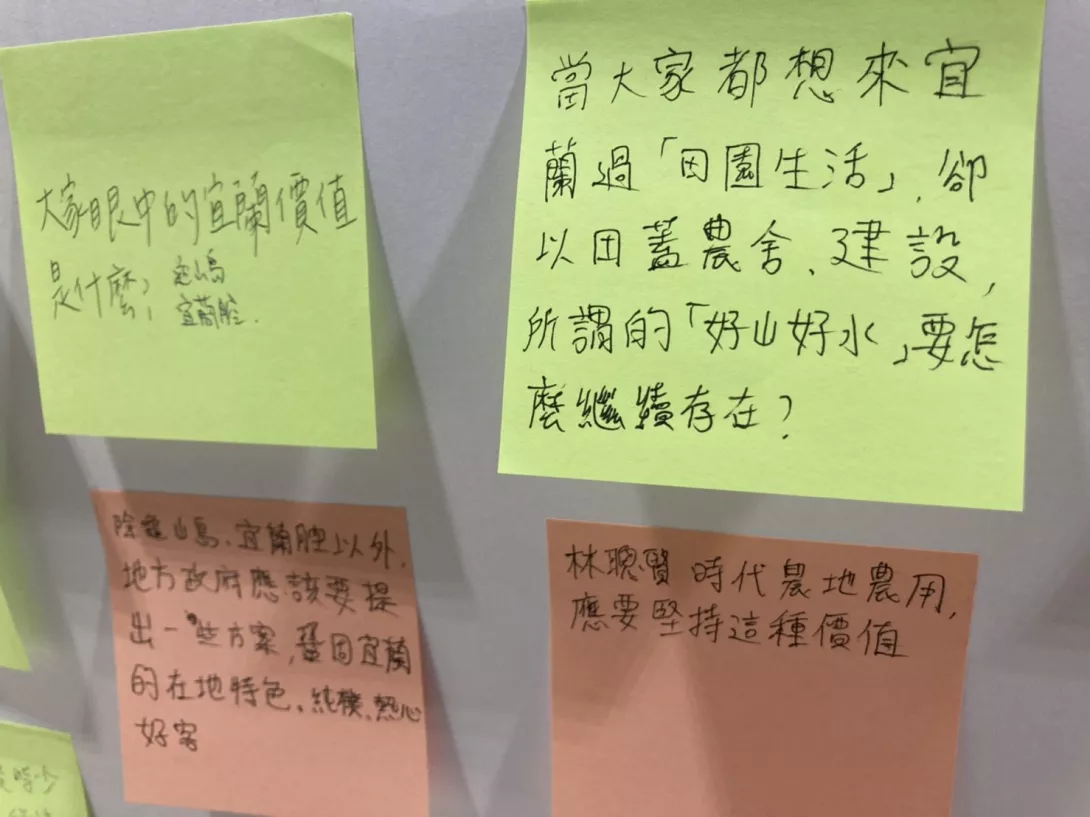 大家眼中的宜蘭價值
是什麼；
宜蘭腔.
當大家都想來宜
蘭過「田園生活」,卻
以田蓋農舍、建設,
所謂的「好山好水」要怎
麼繼續存在？
除龜山島、宜蘭腔以外,
地方政府應該要提
出一些方案,鞏固宜蘭
的在地特色、純樸、熱心
好客
林聰賢 時代農地農用,
應要堅持這種價值
時少